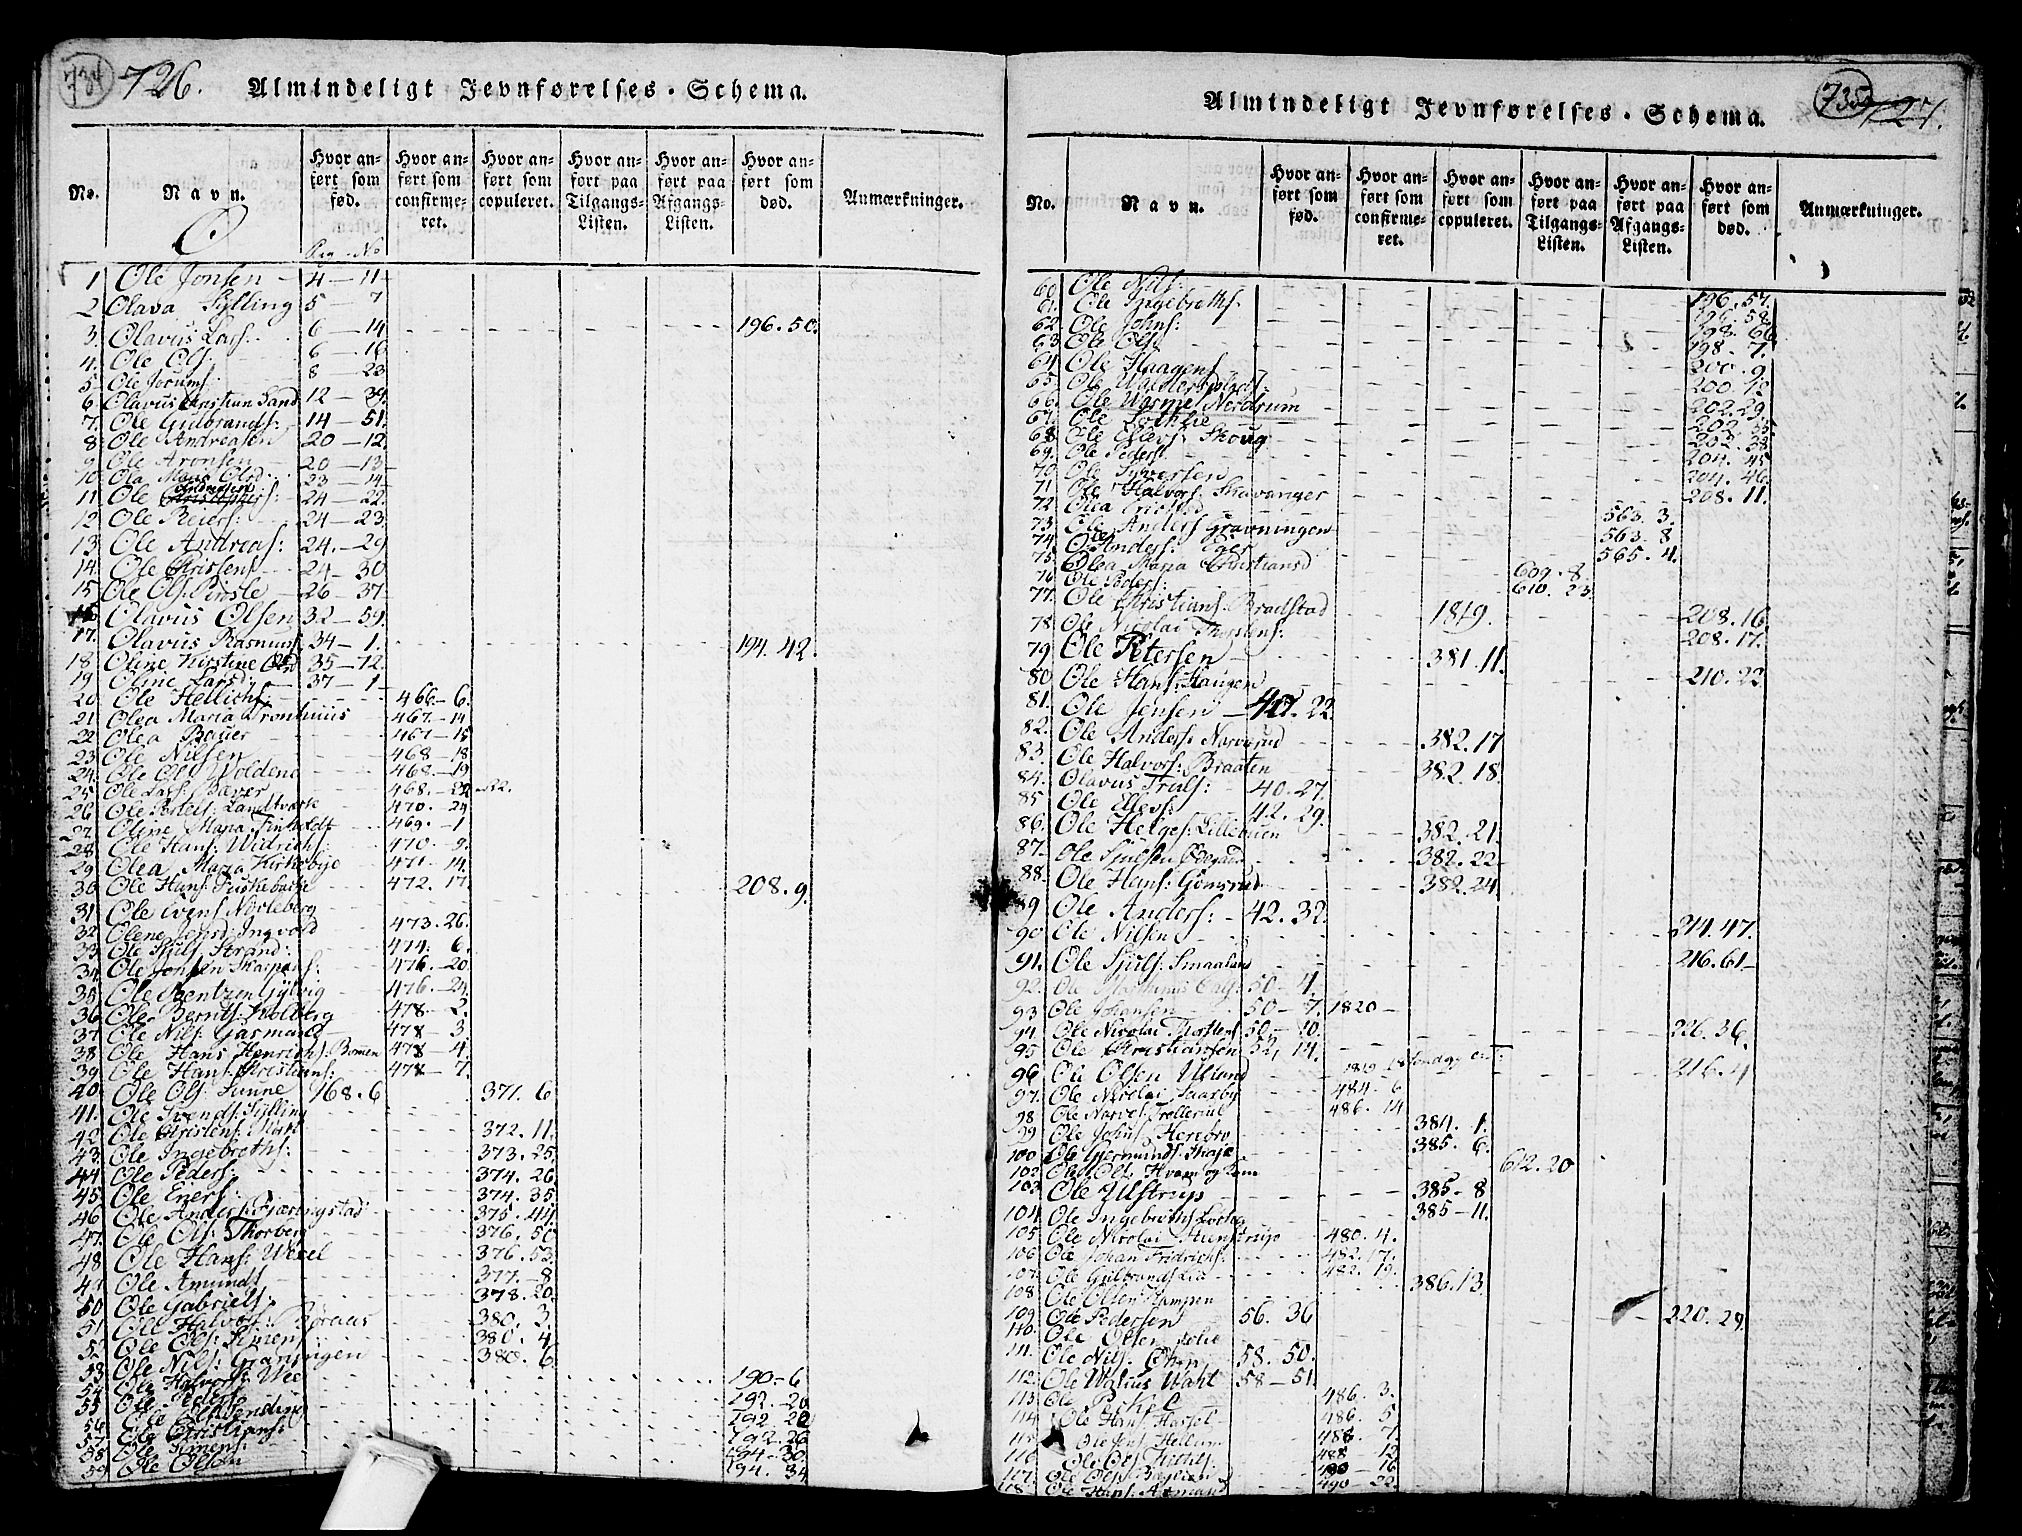 734 726. Almindeligt Jevnførelses-Schema.
No. Navn. Hvor anført som fød. Hvor anført som confirmeret. Hvor anført som copuleret. Hvor anført paa Tilgangs-Listen. Hvor anført paa Afgangs-Listen. Hvor anført som død. Anmærkninger.
O
Pag No
1 Ole Jonsen 4 - 11
2 Olava Sylling 5 7
3. Olavus Lars: 6 - 14 196. 50.
4. Ole Ols: 6 - 16
5. Ole Jorums: 8 - 23
6. Olavus Christian Sand 12 - 34
7. Ole Gulbrands: 14 - 51.
8 Ole Andreasen 20 - 12
9 Ole Aronsen 20 - 13
10. Ola Maria Olsd 23 - 14
11. Ole Andreasen 24 - 22
12 Ole Reiers: 24 - 23
13. Ole Andreas: 24. - 29
14. Ole Christens 24 - 30
15 Ole Ols: 26 - 37
16 Olavus Olsen 32 - 59.
17. Olavus Rasmuns 34 - 1. 194. 42.
18 Oline Kirstine 35 - 12.
19 Oline Larsd: 37 - 1
20 Ole Hellichs: 466 - 6.
21 Olea Maria Tronhuus 467. - 14
22 Olea Bauer 467 - 15
23 Ole Nilsen 468 - 18
24. Ole Ols: Woldene 468. - 19
25 Ole Lars: Bæver 468. - 22
26 Ole Peders: Landtværk 470. - 24
27. Oline Maria Finholdt 469. - 1
28 Ole Hans: Widrichs: 470. - 9.
29 Olea Maria Kirkebye 471 - 14.
30 Ole Hans: Fiskebæche 472. 17. 208. 9.
31 Ole Evens Norleberg
32 Olene Jensd: Ingvold 473. 26.
33 Ole Skjuls: Strand: 474. 6.
34. Ole Jonsen Skarpens: 476. - 20.
35 Ole Bentzen Gylvig 476. - 24
36 Ole Bernts: Holberg 478. - 2.
37 Ole Nils: Gasmand 478 - 3
38 Ole Hans Henrichs: Bomen 478 - 4.
39 Ole Hans: Christians: 478 - 7.
40. Ole Ols: Sunne 168. 6 371. 6
41. Ole Svends: Sylling
42 Ole Christens: 372. 11.
43. Ole Ingebreths: 373. 25.
44 Ole Peders: 374. 26
45. Ole Eners: 374. 35
46 Ole Anders: Fjæringstad 375. 44
47. Ole Ols: Thorberg 376. 50
48 Ole Hans: Wexel 376. 53.
49 Ole Amunds 377. - 8
50 Ole Gabriels: 378. 20.
51 Ole Halvors: Boraas 380. 3.
52. Ole Ols: Simens 380. 4
53 Ole Nils: Grønningen 380. 6.
54 Ole Halvors: Wee 190. - 6
55 Ole Peders: 192. - 20
56 Ole Ols: 192. 22
57 Ole Christians: 192. 26
58 Ole Simens: 194 - 30.
59 Ole Olsen 194. 34
735 727. Almindeligt Jevnførelses-Schema.
No. Navn. Hvor anført som fød. Hvor anført som confirmeret. Hvor anført som copuleret. Hvor anført paa Tilgangs-Listen. Hvor anført paa Afgangs-Listen. Hvor anført som død. Anmærkninger.
60. Ole Nils: 196. 57.
61. Ole Ingebreths: 196. 58.
62 Ole Johns: 198. 66.
63 Ole Ols: 198. 7.
64 Ole Haagens 200. 9.
65. Ole 200. 12
66. Ole Nordrum 202. 29.
67. Ole 202. 35
68. Ole Ellevs: Skoug 202.
69. Ole Peders 204. 45
70 Ole Syversen 204. 46
71 Ole Halvors: Skavanger 208. 11.
72 Olea 563. 3.
73 Ole Anders: Grønningen 563. 8
74. Ole Anders: Eger 565. 4.
75. Olea Maria Christiansd 609. 8.
76 Ole Peders: 610. 23
77. Ole Christians: Bradstad 1819. 208. 16.
78. Ole Nicolai Thorstens: 208. 17.
79 Ole Petersen 381. 11.
80 Ole Hans: Haugen 210. 22.
81. Ole Jensen 40. 22.
82. Ole Anders: Narverud 382. 17
83. Ole Halvors: Braaten 382. 18.
84. Olavus Truls: 40. 27.
85 Ole Ellevs: 42. 29.
86. Ole Helges: Lillebuen 382. 21.
87. Ole Sjulsen Ødegaard 382. 22
88. Ole Hans: Gomsrud 382. 24
89 Ole Anders: 42. 32.
90 Ole Nilsen 214. 47.
91. Ole Sjuls: Smaaland 216. 61
92. Ole 50 - 4.
93 Ole Johansen 50 - 7. 1820
94. Ole Nicolai Thorstens 50. - 10. 226. 36.
95 Ole Christiansen 52. 14.
96 Ole Olsen Uland 1819 216. 4
97. Ole Nicolai Saxeby 484. - 6
98 Ole Narves: Trollerud 486. 14
99 Ole Johns: Herebro 384. 1.
100 Ole Germunds: 385. 6.
102. Ole Ols: Hvam og 612. 20
103. Ole Ulstrup 385 - 8
104. Ole Ingebreths: 385 - 11.
105 Ole Nicolai Hunstrup 480. 4.
106 Ole Johan Fridrichs: 482. 17.
107. Ole Gulbrands Lia 482. 19.
108 Ole Olsen Kampen 386. 13.
109 Ole Pedersen 56. 36 220. 29.
110. Ole Olsen
111. Ole Nils: 58. 50.
112. Ole Walius Wahl 58 - 51.
113. Ole 486. 3.
114 Ole Hans: Hassel 486. 5
115 Ole Jens: Hellum 488. 7.
116 Ole Ols: 488 - 12
117. Ole Ols: 490 - 16
118. Ole Hans: Asmand 490 - 22